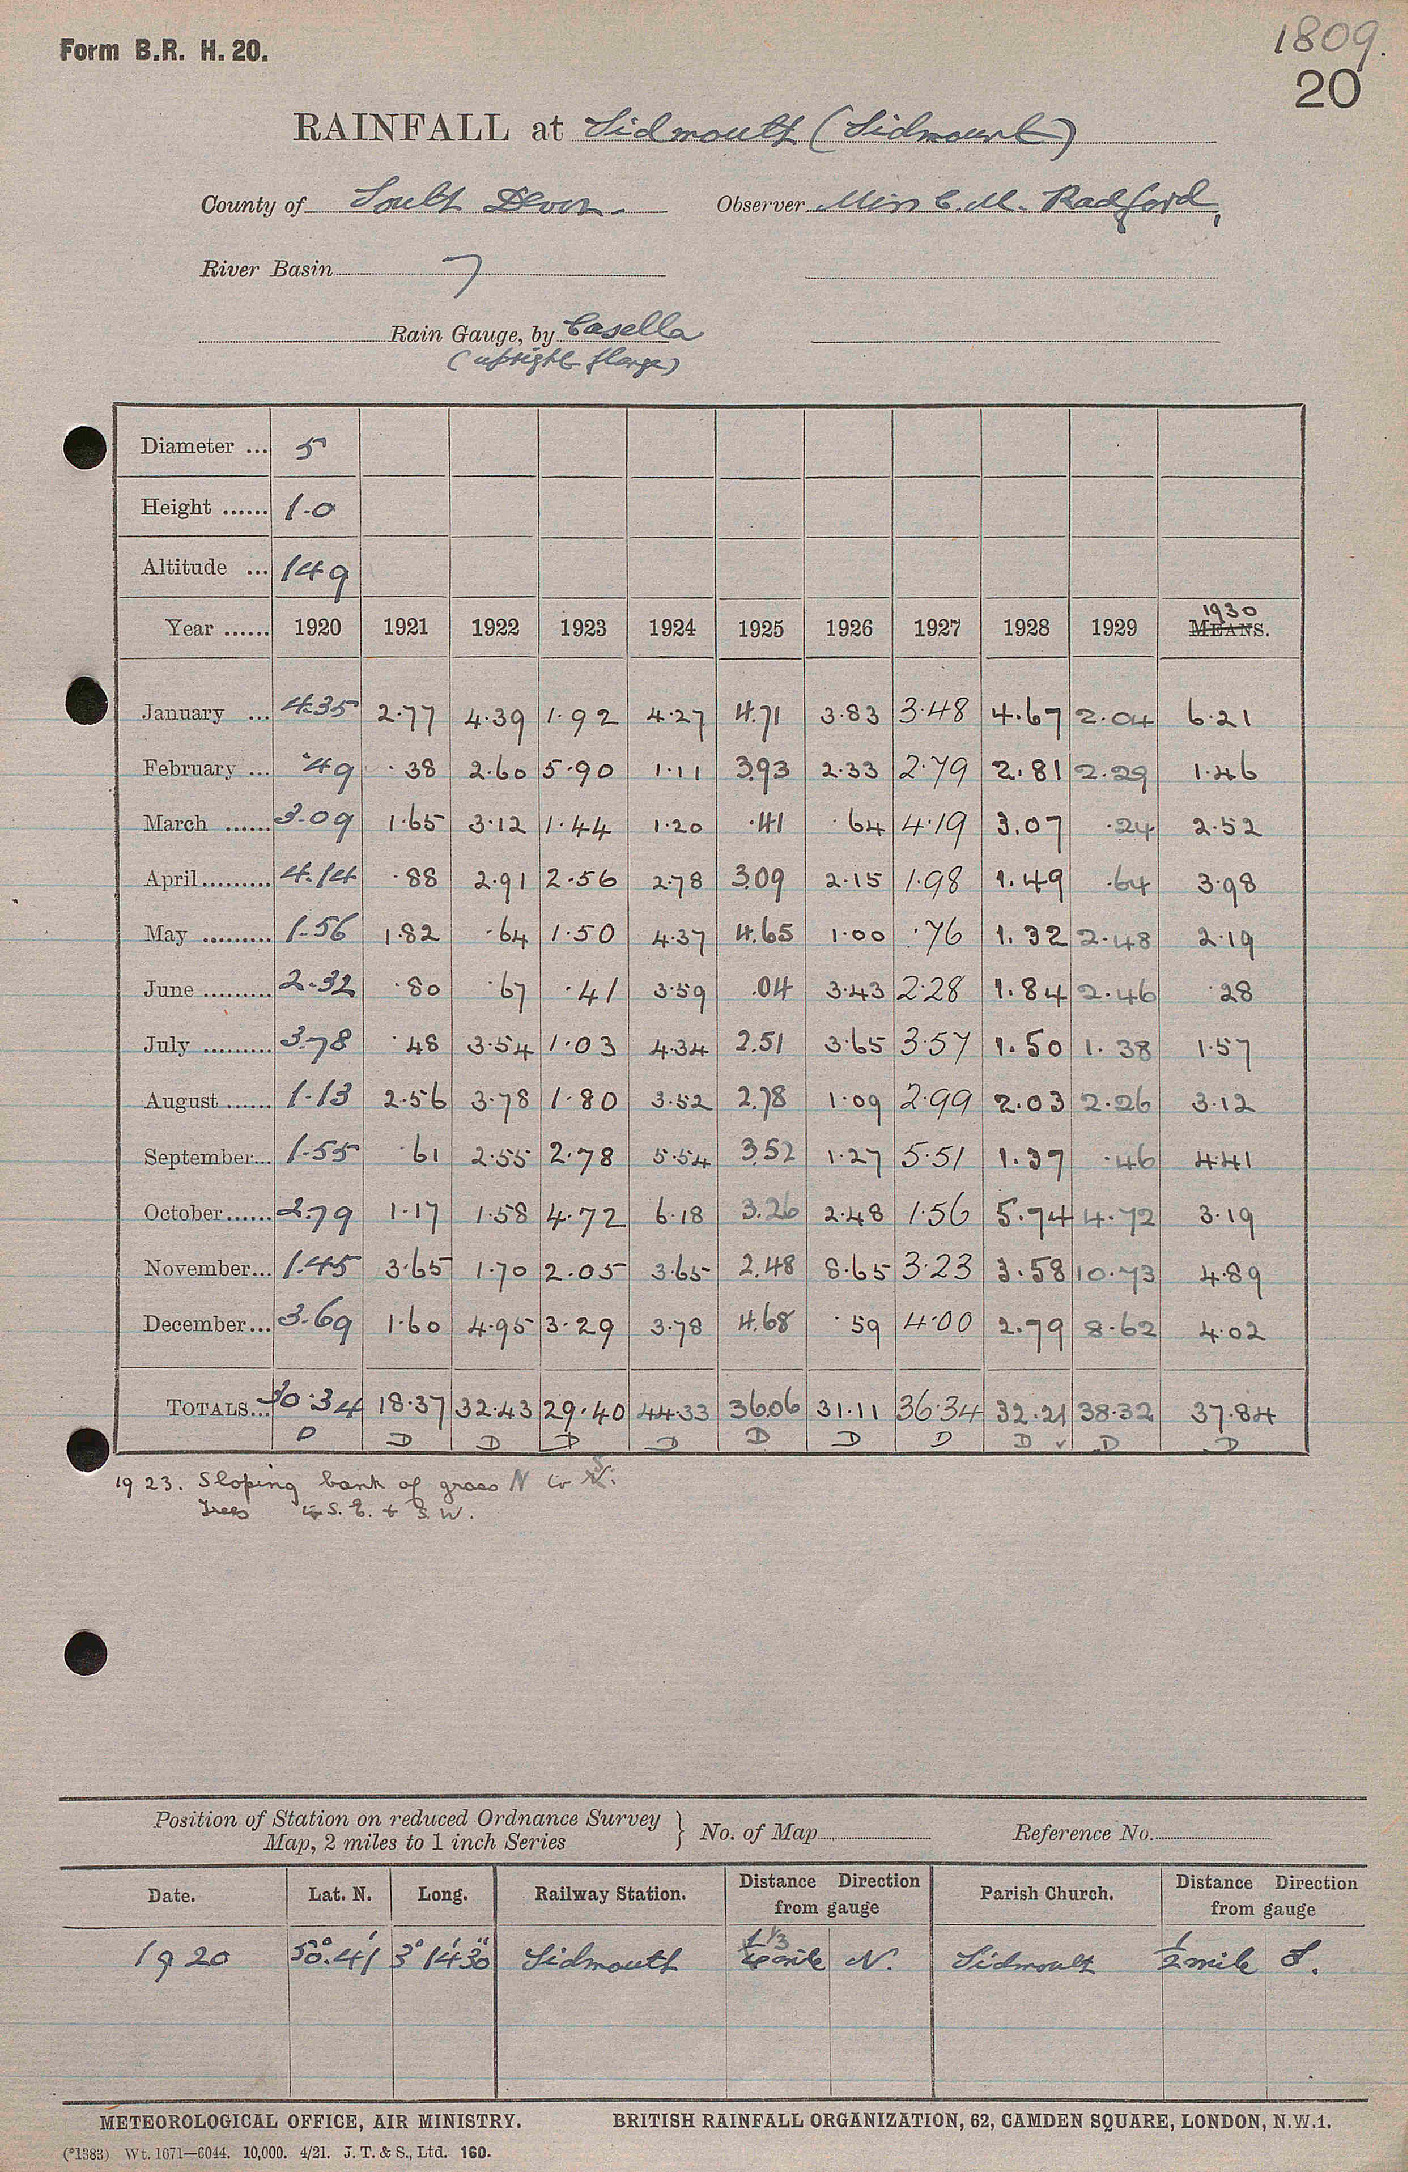 Form B.R. H. 20.
1809.
20
RAINFALL at Sidmouth (Sidmount)
County of South Devon. Observer Miss C. M. Radford,
River Basin 7
Rain Gauge, by Casella
(upright flange)
Diameter ... 5
Height ...... 1-0
Altitude ... 149
1930
Year ...... 1920 1921 1922 1923 1924 1925 1926 1927 1928 1929 MEANS.
January ... 4.35 2.77 4.39 1.92 4.27 4.71 3.83 3.48 4.67 2.04 6.21
February ... .49 .38 2.60 5.90 1.11 3.93 2.33 2.79 2.81 2.29 1.46
March ...... 3.09 1.65 3.12 1.44 1.20 .41 .64 4.19 3.07 .24 2.52
April ......... 4.14 .88 2.91 2.56 2.78 3.09 2.15 1.98 1.49 .64 3.98
May ......... 1.56 1.82 .64 1.50 4.37 4.65 1.00 .76 1.32 2.48 2.19
June ......... 2.32 .80 .67 .41 3.59 .04 3.43 2.28 1.84 2.46 .28
July ......... 3.78 .48 3.54 1.03 4.34 2.51 3.65 3.57 1.50 1.38 1.57
August ...... 1.13 2.56 3.78 1.80 3.52 2.78 1.09 2.99 2.03 2.26 3.12
September... 1.55 .61 2.55 2.78 5.54 3.52 1.27 5.51 1.37 .46 4.41
October...... 2.79 1.17 1.58 4.72 6.18 3.26 2.48 1.56 5.74 4.72 3.19
November... 1.45 3.65 1.70 2.05 3.65 2.48 8.65 3.23 3.58 10.73 4.89
December... 3.69 1.60 4.95 3.29 3.78 4.68 .59 4.00 2.79 8.62 4.02
TOTALS... 30.34 18.37 32.43 29.40 44.33 36.06 31.11 36.34 32.21 38.32 37.84
D D D D D D D D D ✓ D D
1923. Sloping bank of grass N to S.
Trees to S.E. & S.W.
Position of Station on reduced Ordnance Survey
Map, 2 miles to 1 inch Series } No. of Map Reference No.
Date. Lat. N. Long. Railway Station. Distance Direction from gauge Parish Church. Distance Direction from gauge
1920 50°.41' 3°14'30" Sidmouth 1 1/3 mile N. Sidmouth 1/2 mile S.
METEOROLOGICAL OFFICE, AIR MINISTRY. BRITISH RAINFALL ORGANIZATION, 62, CAMDEN SQUARE, LONDON, N.W.1.
(*1383) Wt. 1671—6044. 10,000. 4/21. J. T. & S., Ltd. 160.